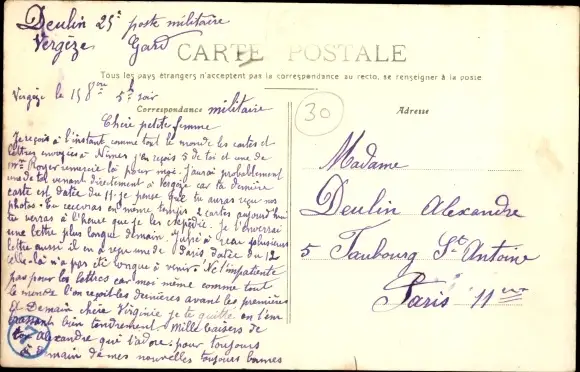 Deulin 25e poste militaire
Vergèze Gard
CARTE POSTALE
Tous les pays étrangers n'acceptent pas la correspondance au recto, se renseigner à la poste
Vergèze le 15 8bre 5h soir
Correspondance militaire
Adresse
30
Chère petite femme
Je reçois à l'instant comme tout le monde les cartes et
lettres envoyées à Nimes j'en reçois 5 de toi et une de
Mme Royer remercie là pour moi. J'aurai probablement
une de toi venant directement à Vergèze car ta dernière
carte est datée du 11. je pense que tu auras reçu mes
photos. Tu recevras en même temps 2 cartes aujourd'hui
tu verras à l'heure que je les expédie. Je t'enverrai
une lettre plus longue demain.
plusieurs
lettres aussi il en a reçu une de Paris datée du 12
celle-là n'a pas été longue à venir. Ne t'impatiente
pas pour les lettres car moi même comme tout
le monde l'on reçoit les dernières avant les premières
A Demain chère Virginie je te quitte en t'em
brassant bien tendrement mille baisers de
ton Alexandre qui t'adore pour toujours
à demain de mes nouvelles toujours bonnes
Madame
Deulin Alexandre
5 Faubourg St Antoine
Paris 11em